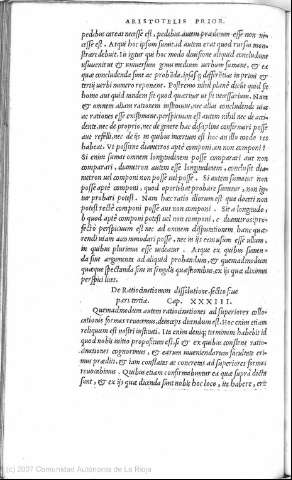 ARISTOTELIS PRIOR.
pedibus careat necesse est, pedibus autem praeditum esse non ne
cesse est. Atque hoc ipsum sumat ad autem erat quod rursus mon
strare debuit. In igitur qui hoc modo divisione aliquid concludunt
usuvenit ut & universum genus medium verbum sumant, & ex
quae concludenda sunt ac probanda, ipsasq; differentias in primi &
tertii verbi numero reponant. Postremo nihil planè dicunt quod se
homo aut quid tandem sit quod quaeritur ut sit necessarium. Nam
& omnem aliam rationem instituunt, nec alias concludendi vias
ac rationes esse existimant, perspicuum est autem nihil nec de acci
dente, nec de proprio, nec de genere hac disciplina confirmari posse
aut refelli, nec de iis in quibus incertum est hoc an illo modo res
habeat. Ut possitne diametros aptè componi, an non componi?
Si enim sumat omnem longitudinem posse comparari aut non
comparari, diametrum autem esse longitudinem, conclusit diame
trum vel componi non posse vel posse. Si autem sumatur non
posse aptè componi, quod oportebat probare sumetur, non igi
tur probari potest. Nam haec ratio illorum est qua doceri non
potest rectè componi posse aut non componi. Sit a longitudo,
b quod aptè componi potest vel non componi, c diametros: per
fectò perspicuum est nec ad omnem disputationem hanc quae
rendi viam accommodari posse, nec in iis eius usum esse ullum,
in quibus plurimum esse videatur. Atque ex quibus sumen
da sint argumenta ad aliquid probandum, & quemadmodum
quaeque spectanda sint in singulis quaestionibus, ex iis quae diximus
perspici licet.
De Ratiocinationum dissolutione, sectio sive
pars tertia. Cap. XXXIII.
Quemadmodum autem ratiocinationes ad superiores collo
cationis formas revocemus, deinceps dicendum est. Hoc enim etiam
reliquum est nostri instituti. Ita enim deniq; terminum habebit id
quod nobis initio propositum est, si & ex quibus constent ratio
cinationes cognorimus, & earum inveniendarum facultate eri
mus praediti, & iam conflatas ac coneretas ad superiores formas
revocabimus. Quibus etiam confirmabuntur ea quae supra dicta
sunt, & ex iis quae dicenda sunt nobis hoc loco, ita habere, erit
(c) 2007 Comunidad Autónoma de La Rioja